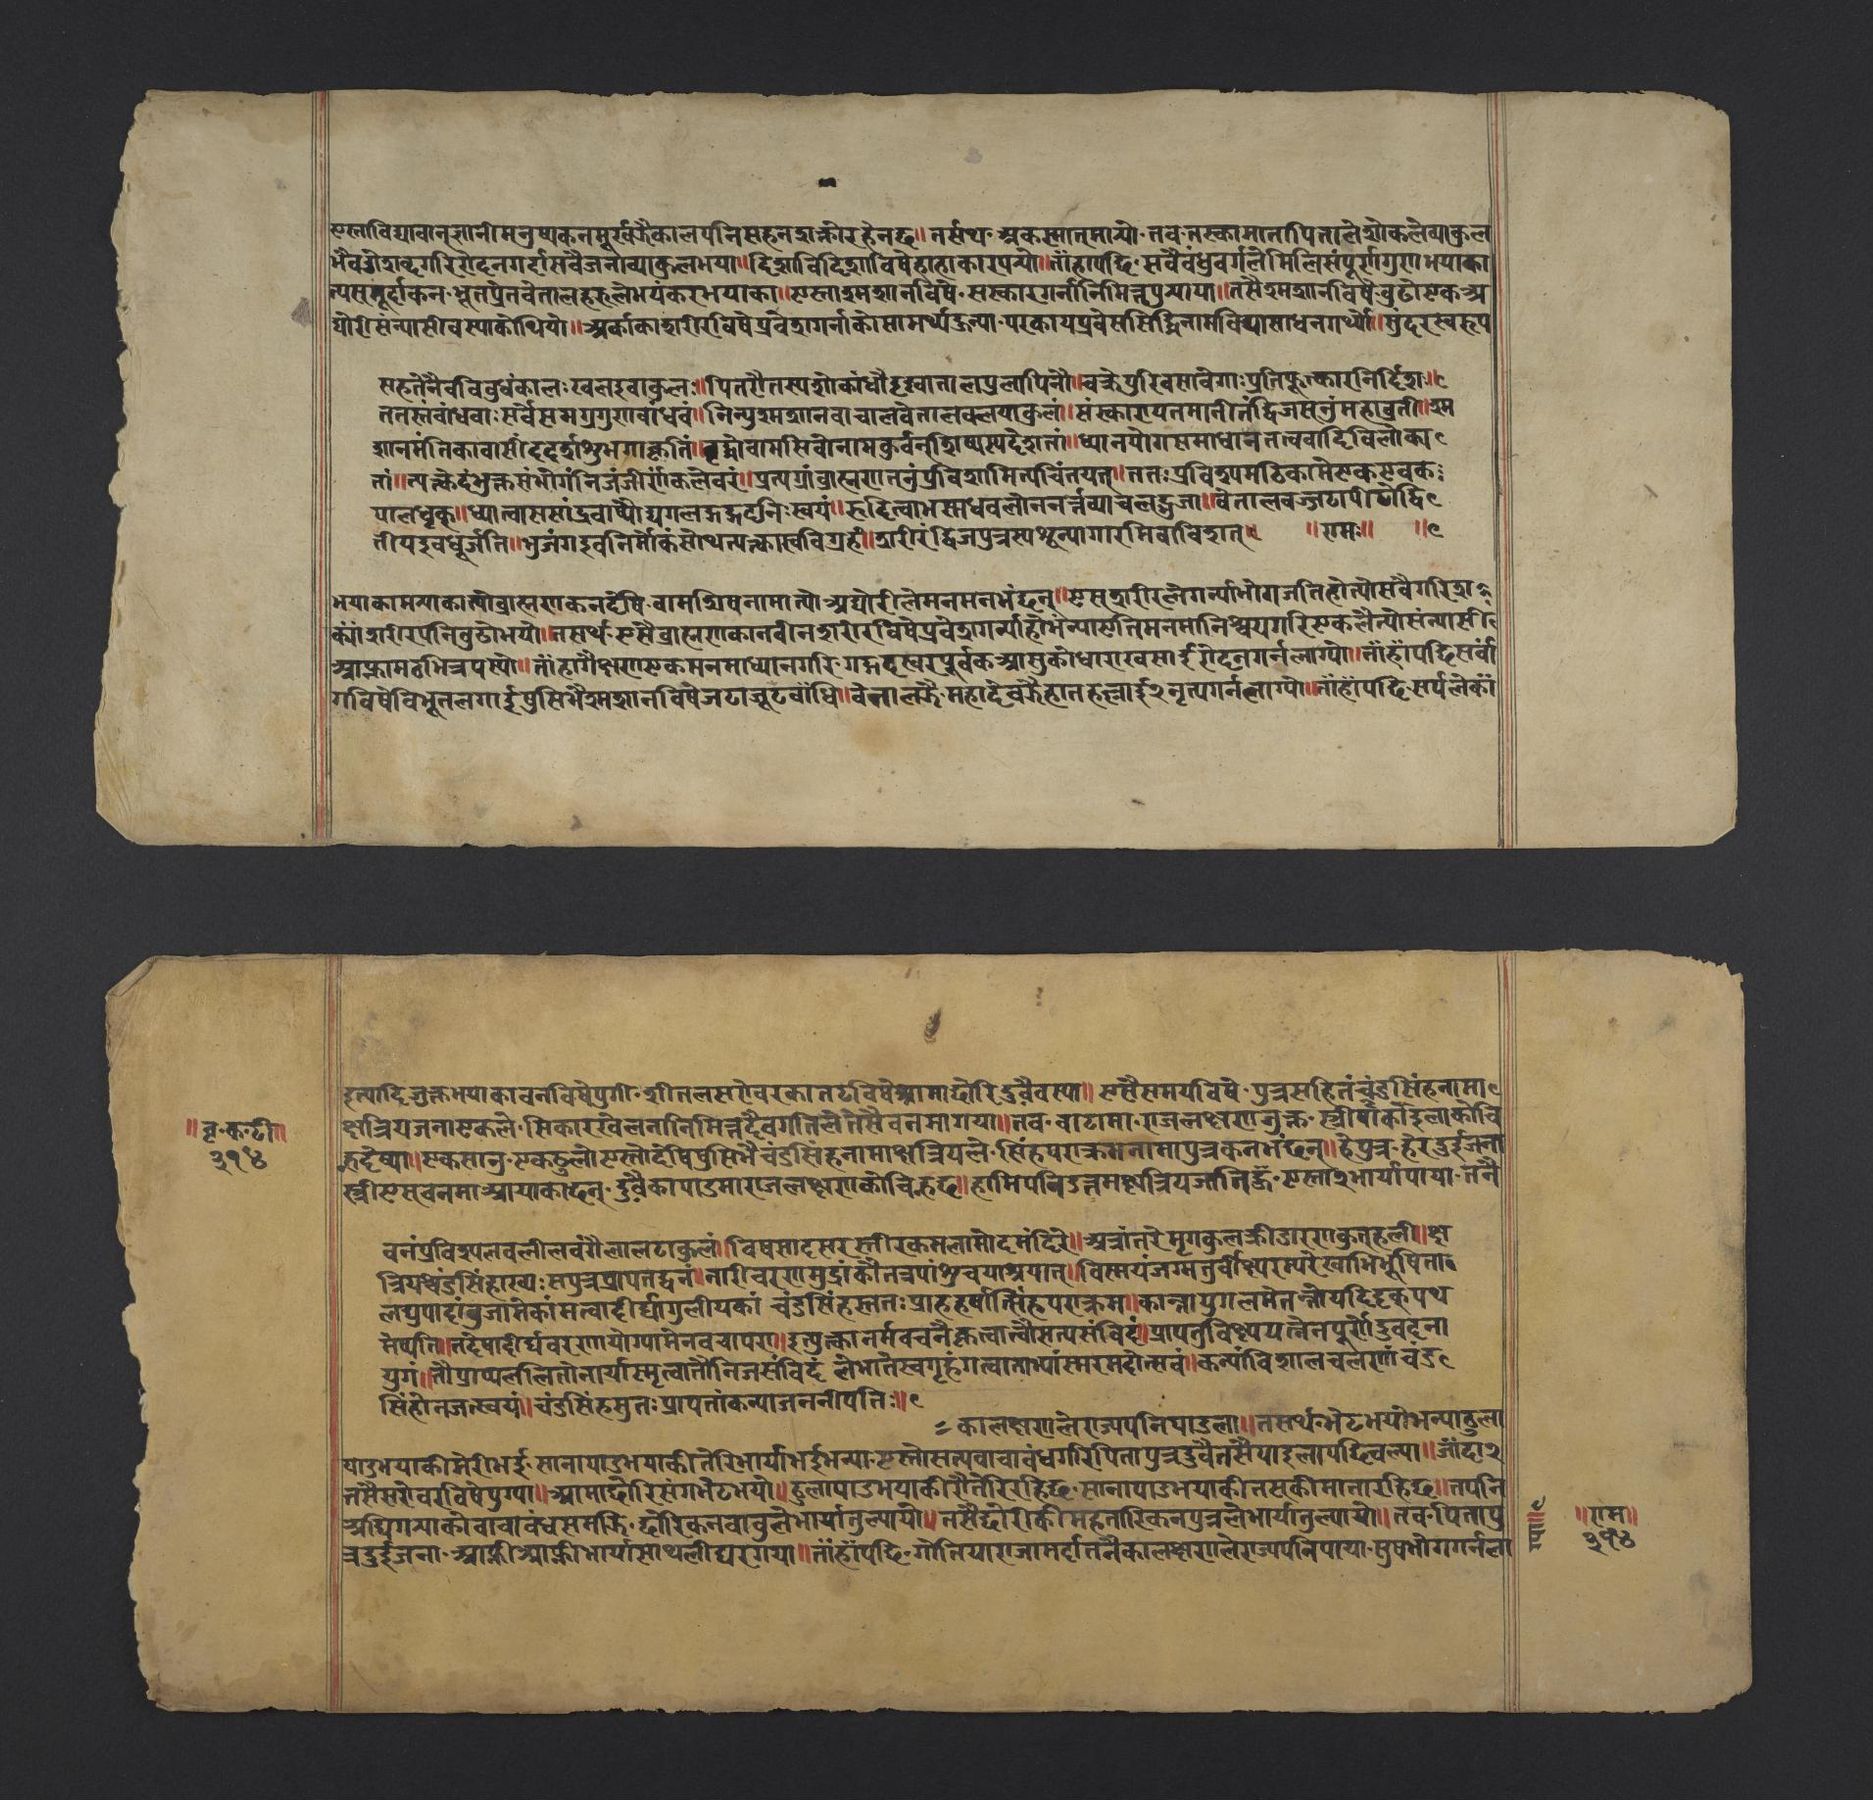 एस्ता विद्यावान् ज्ञानी मनुष्यकन मूर्ख झैं कालपनि सहन शक्तो रहेनछ॥ तसर्थ अकस्मात् मार्‍यो तव तस्का माता पिताले शोकले व्याकुल
भै वज्रो शब्द गरि रोदन गर्दा सवै जना व्याकुल भया॥ दिशा विदिशा विषे हाहाकार पर्‍यो॥ ताँहा पछि सवै वंधुवर्गले मिलि संपूर्ण गुण भयाका
त्यस मूर्दाकन भूत प्रेत वेताल हरूले भयंकर भयाका॥ एस्ता श्मशान विषे सस्कार गर्ना निमित्त पुर्‍याया॥ तसै श्मशान विषे वुढो एक अ
घोरी सन्यासी वस्याको थियो॥ अर्काका शरीर विषे प्रवेश गर्नाको सामर्थ्य हुन्या परकाय प्रवेस सिद्धि नाम विद्या साधन गर्थ्यो॥ सुंदर स्वरूप
सहते नैव विवुधं कालः खल इवाकुलः॥ पितरौ तस्य शोकांधौ दृष्ट्वा ताल प्रलापिनौ॥ चक्रे पुरिवसावेगाः प्रतिफुत्कारनिर्दिशः॥
ततस्तं वांधवाः सर्वे समग्रगुणवांधवं॥ निन्युः श्मशान वाचाल वेताल वलयाकुलं॥ संस्कारायतमानीतं द्विजसूनुं महाव्रती॥ श्म
शानमंतिकावासी ददर्श शुभगाकृतिं॥ वृद्धो वामसिवो नाम कुर्वन् शिष्यस्य देशनां॥ ध्यानयोगसमाधान तत्त्ववादि विलोक्य
तां॥ त्यत्केदं भुक्त संभोगं निजं जीर्ण कलेवरं॥ प्रत्यग्रां व्राह्मण तनुं प्रविशामित्यचिंतयत्॥ ततः प्रविश्य मठिकामेक एवक
पालधृक्॥ ध्यात्वा ससांद्रवाष्पौद्यगलद्गद्गदनिः स्वयं॥ रुदित्वा भस्मधवलो ननर्त्त व्याचलद्भुजा॥ वेताल वज्जटापीठो द्वि
तीय इव धूर्जति॥ भुजंग इव निर्मोकं सोथ त्यत्क्का स्वविग्रहं॥ शरीरं द्विजपुत्रस्य शून्यागारमिवाविशत्॥ ॥राम॥
भयाका मर्‍याका त्यो व्राह्मणकन देषि वाम शिव नामा त्यो अघोरीले मन मन भंछन्॥ एस् शरीरले गर्न्या भोग जति हो त्यो सवै गरिश
क्यां शरीर पनि वुढो भयो॥ तसर्थ एसै व्राह्मणका नवीन शरीर विषे प्रवेश गर्न्या हो भंन्या एति मनमा निश्चय गरि एकलै त्यो संन्यासी
आफ्ना मठ भित्र पस्यो॥ ताँहा गै क्षण एक मनमा ध्यान गरि गद्गद् स्वर पुर्वक आसुको धारा खसाई रोदन गर्न लाग्यो॥ ताँहाँ पछि सर्वां
ग विषे विभूत लगाई षुसि भै श्मशान विषे जटाजूट वाँधि॥ वेताल झैं महादेव झैं हात हल्लाई २ नृत्य गर्न लाग्यो॥ ताँहाँ पछि सर्पले काँ
इत्यादि युक्त भयाका वन विषे पुगी शीतल सरोवरका तट विषे आमा छोरि दुवै वस्या॥ एसै समय विषे पुत्र सहितं चंडसिंह नामा
क्षत्रिय जना एकले सिकार खेलना निमित्त दैवगतिले तेसै वनमा गया॥ तव वाटामा राजलक्षण युक्त स्त्रीषाका ई लाको चि
ह्न देष्या॥ एक सानु एक ठुलो एस्तो देषि षुसि भै चंडसिंह नामा क्षत्रियले सिंहपराक्रम नामा पुत्रकन भंछन्॥ हे पुत्र हेर दुई जना
स्त्री एस वनमा आयाका छन् दुवैका पाउमा राजलक्षणको चिह्न छ॥ हामि पनि उत्तम क्षत्रिय जाति हौं एस्ता २ भार्या पाया तनै
॥वृ॰क॰टी॥
३१४
वनं प्रविश्य लवली लवंगैलालटाकुलं॥ विषसाद सरस्तीर कमलामोद मंदिरे॥ अत्रांतरे मृगकुल क्रीडारण कुतूहली॥ क्ष
त्रियश्चंडसिंहाख्यः सपुत्रः प्राप तद्वनं॥ नारीचरणमुद्रांकौ तत्र पांशुचयाश्रयात्॥ विस्मयं जग्मतुर्वीक्ष्य परस्परेखाभिभूषिता
लघुपादांवुजामेकामत्वा दीर्घांगुलीयकां चंडसिंहस्ततः प्राह हर्षात् सिंहपराक्रमं॥ कान्तायुगलमेतन्नौ यदि दृक्पथ
मेष्यति॥ तदेषा दीर्घचरण योग्यामे तव चापरा॥ इत्युक्त्वा नर्मवचनैः कृत्वा तौ सत्यसंविदं॥ प्रापतु वीक्ष्य यत्नेन पूर्णेन्दुवदना
युगं॥ तौ प्राप्य ललितो नार्यो स्मृत्वा तौ निजसंविदं लेभाते स्वगृहं गत्वा ताभ्यां स्मरमहोत्सवं॥ कन्यां विशालचलणां चंड
सिंहो नजत्स्वयं॥ चंडसिंहसुतः प्राप तां कन्या जननी पतिः॥
कालक्षणले राज्य पनि पाउला॥ तसर्थ भेट भयो भन्या ठुला
पाउ भयाकी मेरी भई साना पाउ भयाकी तेरि भार्या भई भन्या एस्तो सत्य वाचा वंध गरि पिता पुत्र दुवै तसै पाइला पछि चल्या॥ जाँदा २
तसै सरोवर विषे पुग्या॥ आमा छोरि संग भेट भयो॥ ठुला पाउ भयाकी रौ तेरि रहिछ साना पाउ भयाकी तसकी माता रहिछ॥ तपनि
अघि गर्‍याको वाचा वंध समझि छोरिकन वावुले भार्या तुल्यायो॥ तसै छोरीकी महतारिकन पुत्रले भार्या तुल्यायो॥ तव पिता पु
त्र दुई जना आफ्नी आफ्नी भार्या साथ ली घर गया॥ ताँहाँ पछि गोतिया राजा मर्दा तनै कालक्षणले राज्य पनि पाया सुष भोग गर्न ला
॥राम॥
३१४